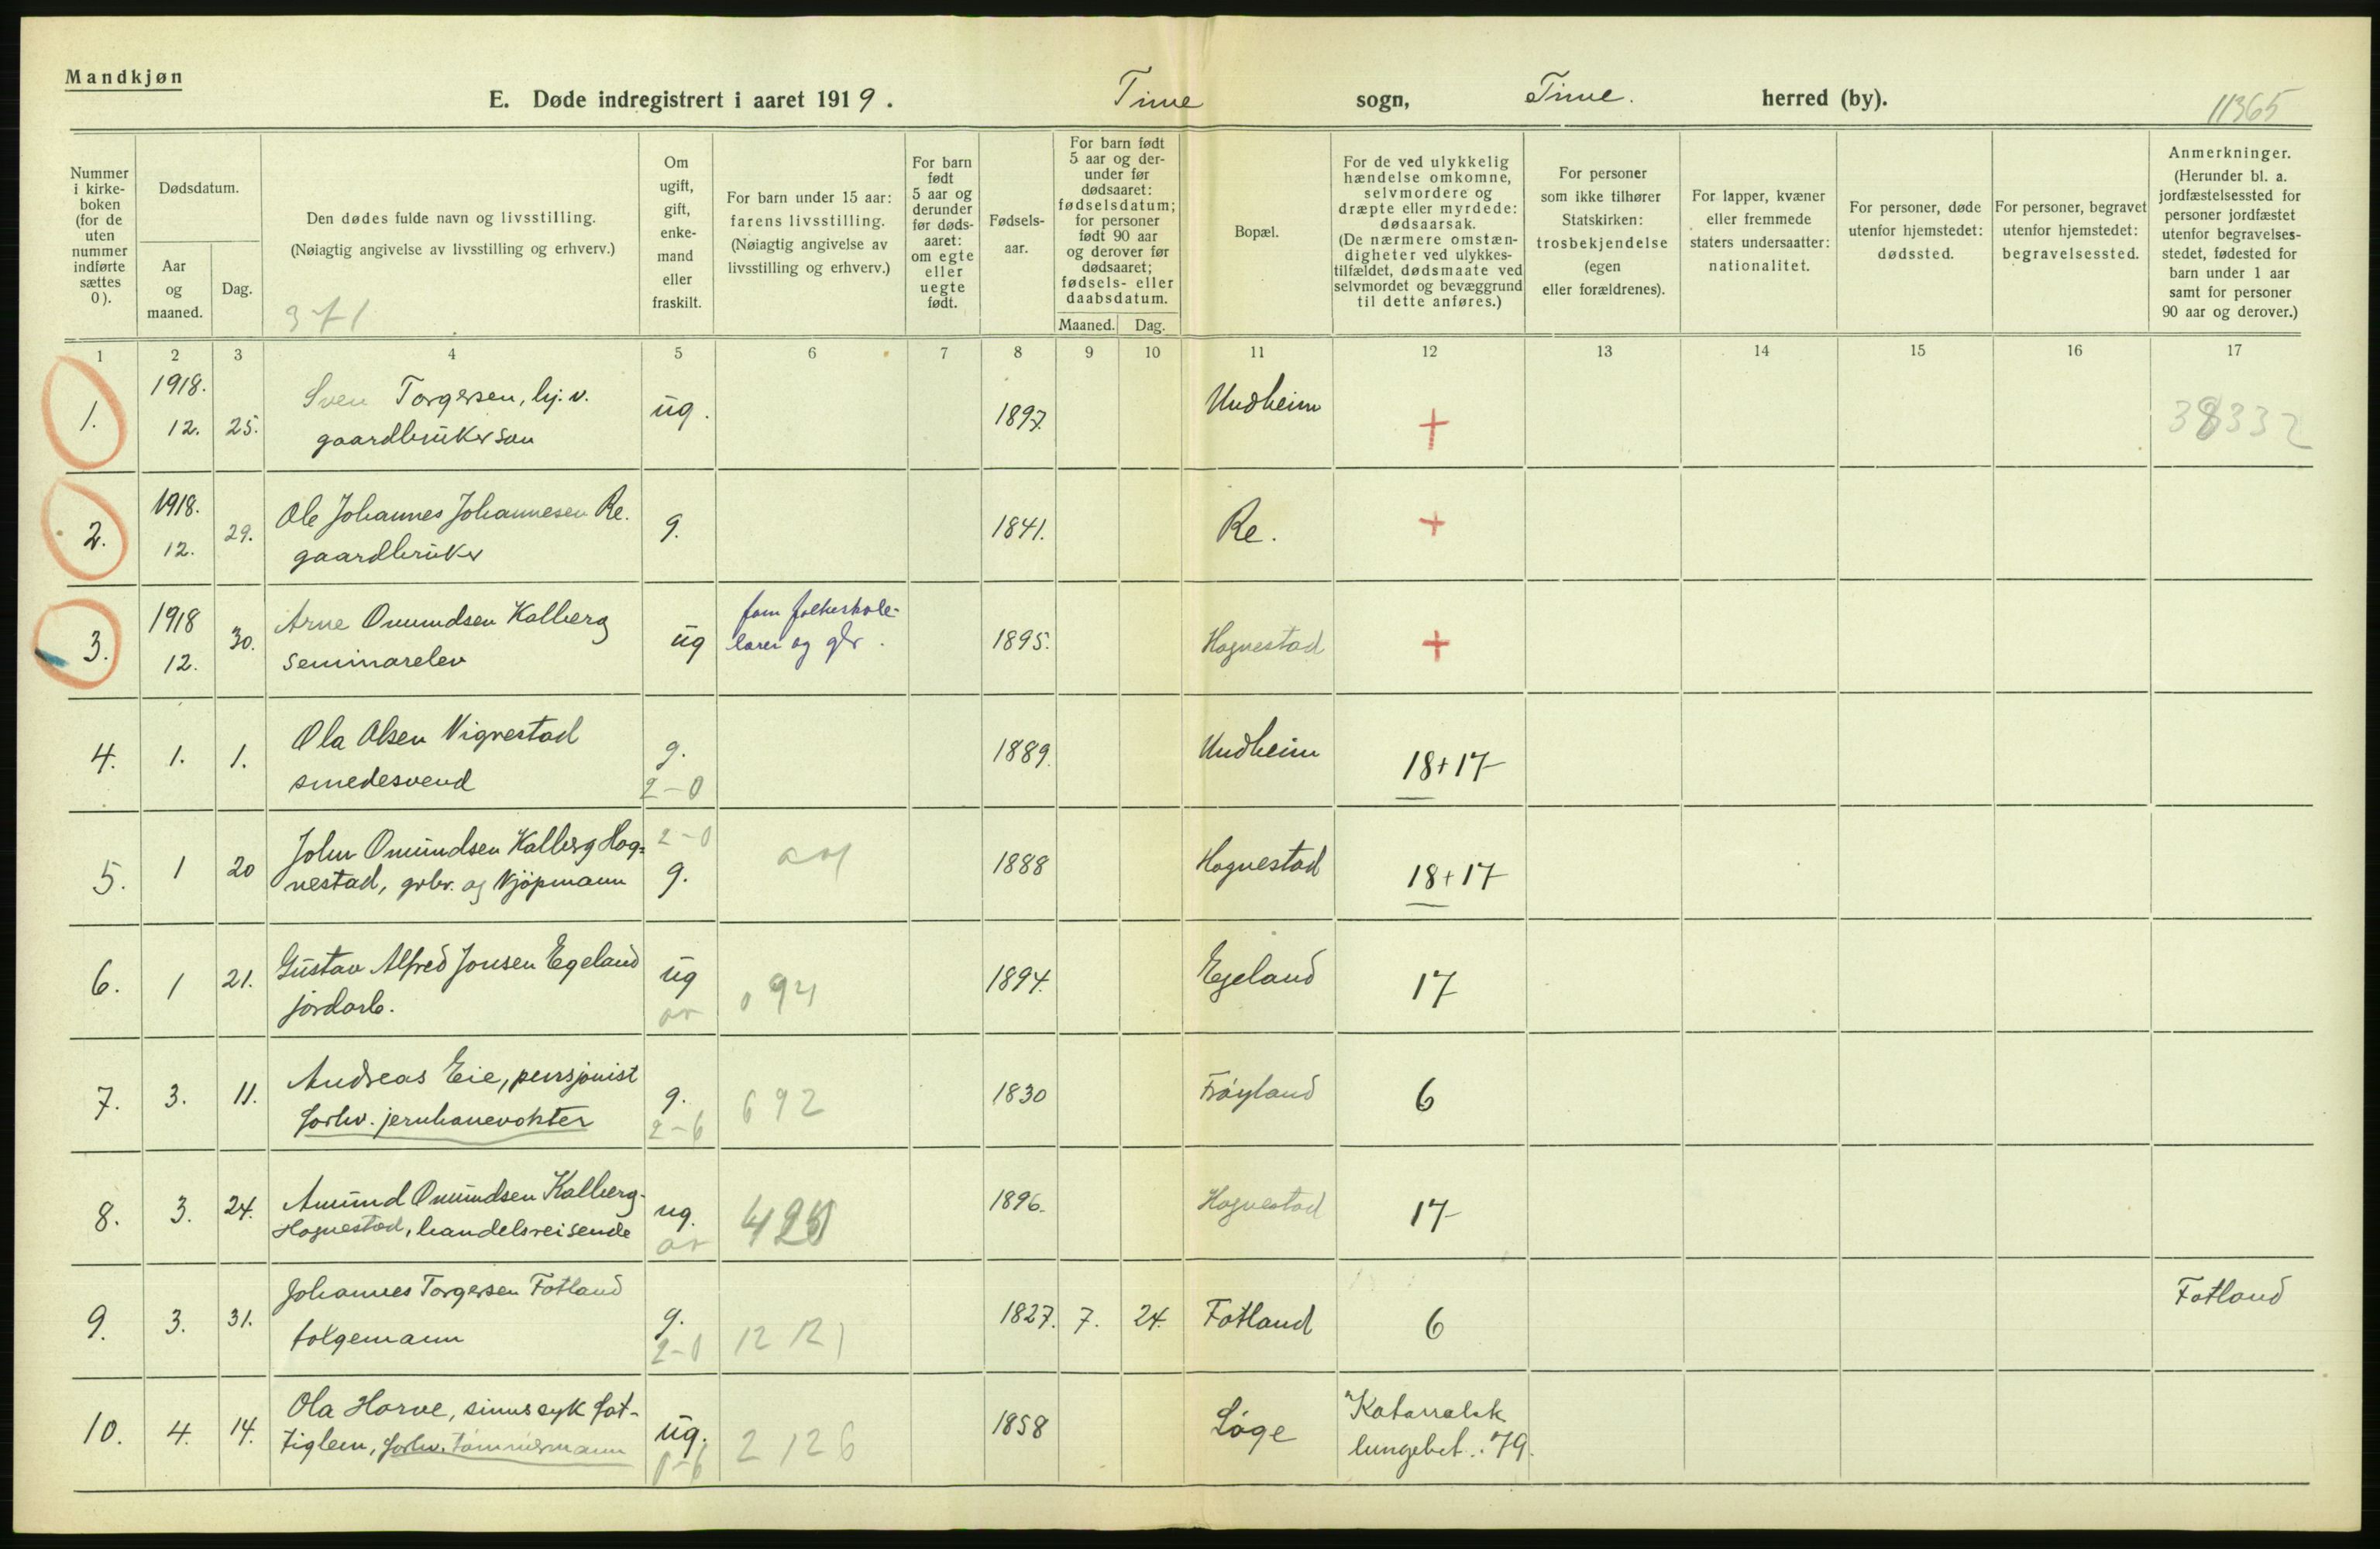 Mandkjøn
E. Døde indregistrert i aaret 1919. Time sogn, Time. herred (by).
11365
Nummer i kirke-boken (for de uten nummer indførte sættes 0).
Dødsdatum.
Aar og maaned.
Dag.
Den dødes fulde navn og livsstilling.
(Nøiagtig angivelse av livsstilling og erhverv.)
371
Om ugift, gift, enke-mand eller fraskilt.
For barn under 15 aar: farens livsstilling.
(Nøiagtig angivelse av livsstilling og erhverv.)
For barn født 5 aar og derunder før døds-aaret: om egte eller uegte født.
Fødsels-aar.
For barn født 5 aar og der-under før dødsaaret: fødselsdatum; for personer født 90 aar og derover før dødsaaret; fødsels- eller daabsdatum.
Maaned. Dag.
Bopæl.
For de ved ulykkelig hændelse omkomne, selvmordere og dræpte eller myrdede: dødsaarsak.
(De nærmere omstæn-digheter ved ulykkes-tilfældet, dødsmaate ved selvmordet og bevæggrund til dette anføres.)
For personer som ikke tilhører Statskirken: trosbekjendelse (egen eller forældrenes).
For lapper, kvæner eller fremmede staters undersaatter: nationalitet.
For personer, døde utenfor hjemstedet: dødssted.
For personer, begravet utenfor hjemstedet: begravelsessted.
Anmerkninger.
(Herunder bl. a. jordfæstelsessted for personer jordfæstet utenfor begravelses-stedet, fødested for barn under 1 aar samt for personer 90 aar og derover.)
1 2 3 4 5 6 7 8 9 10 11 12 13 14 15 16 17
1. 1918. 12. 25. Sven Torgersen, hj. v. ug. 1897. Undheim + 38332
gaardbruker søn
2. 1918. 12. 29. Ole Johannes Johannesen Re. g. 1841. Re. +
gaardbruker
3. 1918 12. 30. Arne Omundsen Kalberg ug fam folkeskole- 1895. Hognestad +
seminarelev lærer og gbr.
4. 1. 1. Ola Olsen Vigrestad g. 1889. Undheim 18+17
smedesvend 2-0
5. 1 20 John Omundsen Kalberg Hog= 2-0 g. 1888 Hognestad 18+17
nestad, grbr. og kjøpmann
6. 1 21. Gustav Alfred Jonsen Egeland ug 094 1894. Egeland 17
jordarb.
7. 3. 11. Andreas Eie, pensjonist g. 692 1830 Frøyland 6
forhv. jernbanevokter 2-6
8. 3. 24. Amund Omundsen Kalberg- ug. 1896. Hognestad 17
Hognestad, handelsreisende
9. 3. 31. Johannes Torgersen Fotland g. 1827. 7. 24. Fotland 6 Fotland
folgemann 2-0 12121
10. 4. 14. Ola Horve, sinnssyk fat- ug. 2126 1858 Løge Katarralsk
tiglem, forhv. tømmermann 0-6 lungebet. 79.